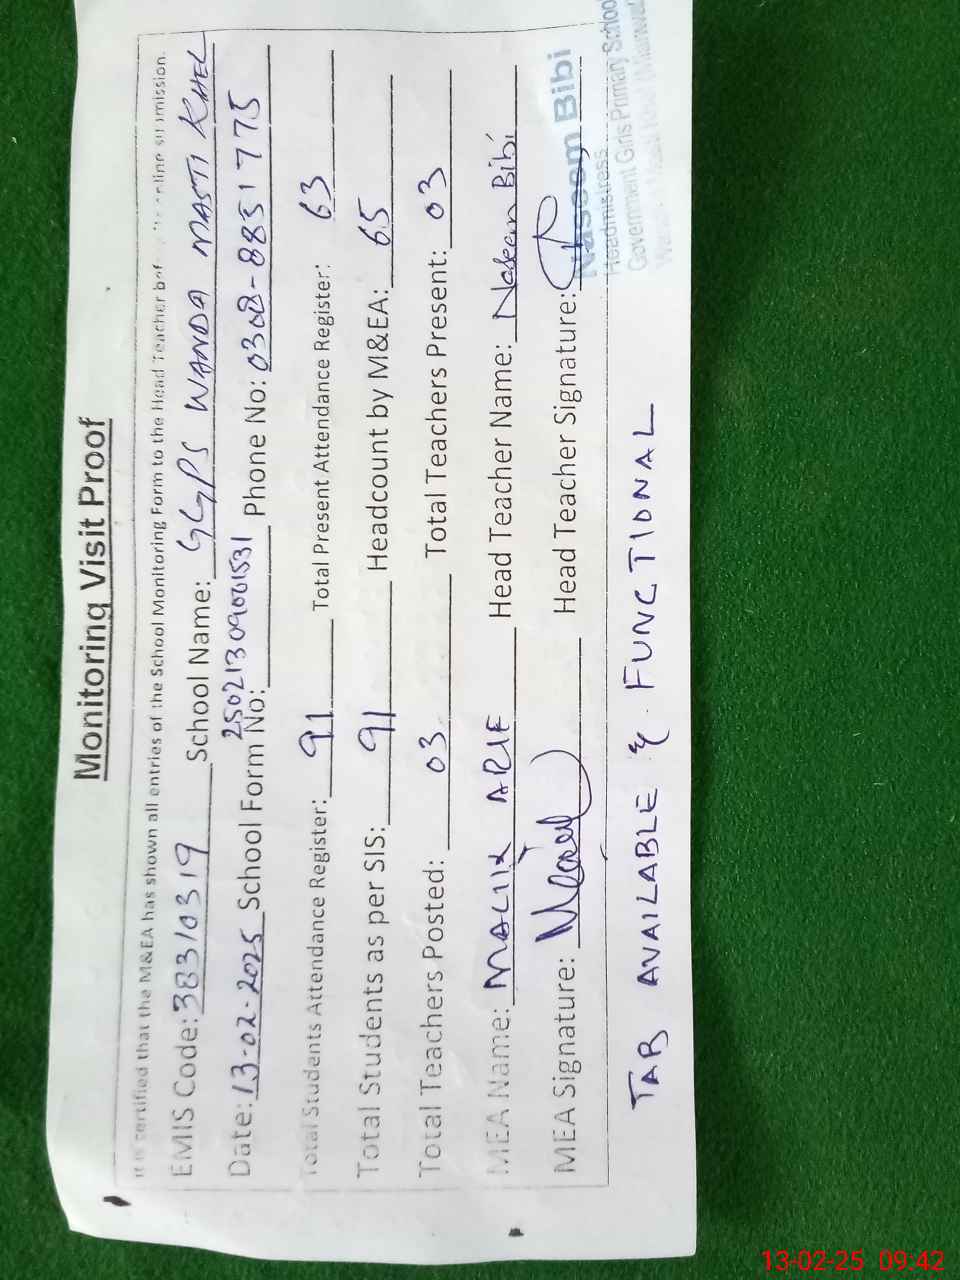 Monitoring Visit Proof
It is certified that the M&EA has shown all entries of the School Monitoring Form to the Head Teacher before online submission.
EMIS Code: 38310319 School Name: GGPS WANDA MASTI KHEL
Date: 13-02-2025 School Form No: 25021309001531 Phone No: 0308-8851775
Total Students Attendance Register: 91 Total Present Attendance Register: 63
Total Students as per SIS: 91 Headcount by M&EA: 65
Total Teachers Posted: 03 Total Teachers Present: 03
MEA Name: MALIK ARIF Head Teacher Name: Naseem Bibi
MEA Signature: Head Teacher Signature:
Naseem Bibi
Headmistress
Government Girls Primary School
TAB AVAILABLE & FUNCTIONAL
13-02-25 09:42